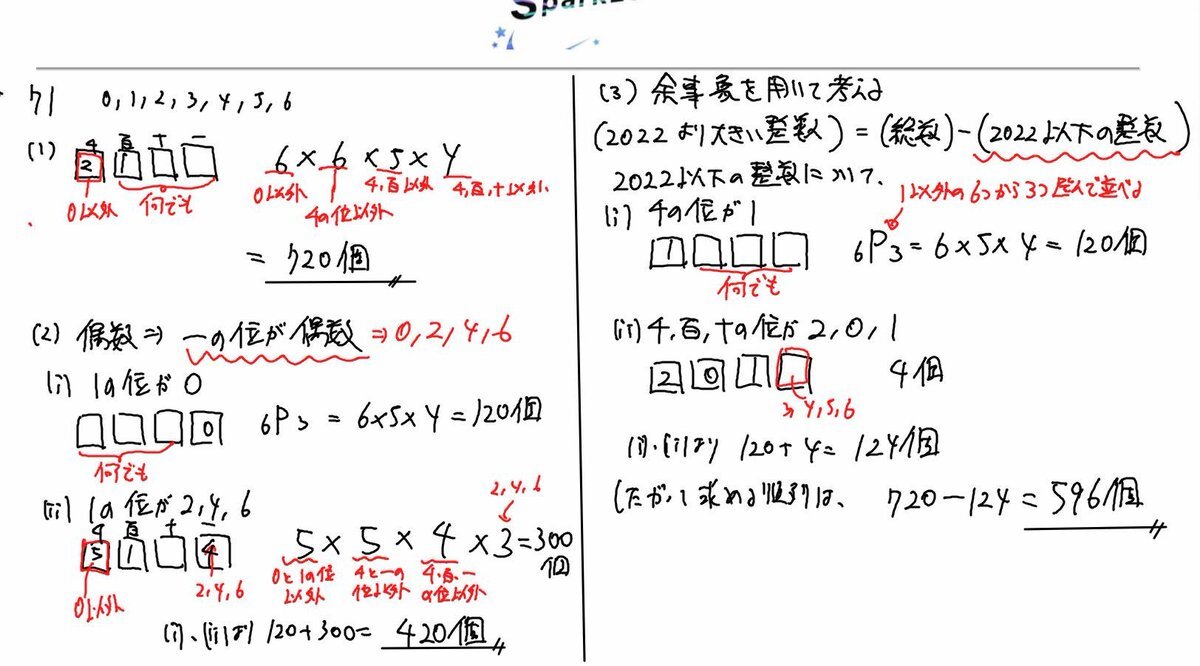 Spark
71 0, 1, 2, 3, 4, 5, 6
(1) 千 百 十 一
2 1
6 × 6 × 5 × 4
0以外
何でも
0以外 千の位以外 千,百以外 千,百,十以外
= 720個
(2) 偶数 ⇒ 一の位が偶数 ⇒ 0, 2, 4, 6
(i) 1の位が 0
0 6P3 = 6×5×4 = 120個
何でも
(ii) 1の位が 2, 4, 6
2, 4, 6
千 百 十 一
5 1 4 5 × 5 × 4 × 3 = 300個
0以外 2, 4, 6
0と1の位以外 千と一の位以外 千,百,一の位以外
(i)、(ii)より 120+300 = 420個
(3) 余事象を用いて考える
(2022より大きい整数) = (総数) - (2022以下の整数)
2022以下の整数について、
1以外の6つから3つ選んで並べる
(i) 千の位が 1
1 6P3 = 6×5×4 = 120個
何でも
(ii) 千, 百, 十の位が 2, 0, 1
2 0 1 4個
3, 4, 5, 6
(i)、(ii)より 120 + 4 = 124個
したがって求める順列は、 720 - 124 = 596個